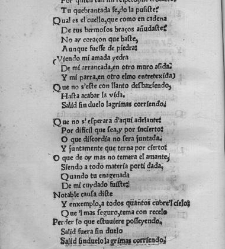 Tu quebrantada fe, do la pusiste?
Qual es el cuello, que como en cadena
De tus hermosos braços añudaste?
No ay coraçon que baste,
Aunque fuesse de piedra,
Viendo mi amada yedra
De mi arrancada, en otro muro asida,
Y mi parra, en otro olmo entretexida,
Que no s'este con llanto deshaziendo,
Hasta acabar la vida,
Salid sin duelo lagrimas corriendo,
Que no s'esperara d'aqui adelante,
Por dificil que sea, y por incierto?
O que discordia no sera juntada,
Y juntamente que terna por cierto?
O que de oy mas no temera el amante,
Siendo a todo materia por ti dada,
Quando tu enagenada
De mi cuydado fuiste,
Notable causa diste
Y enxemplo, a todos quantos cubre'l cielo,
Que'l mas seguro, tema con recelo
Perder lo que estuuiere posseyendo,
Salid fuera sin duelo
Salid sin duelo lagrimas corriendo,